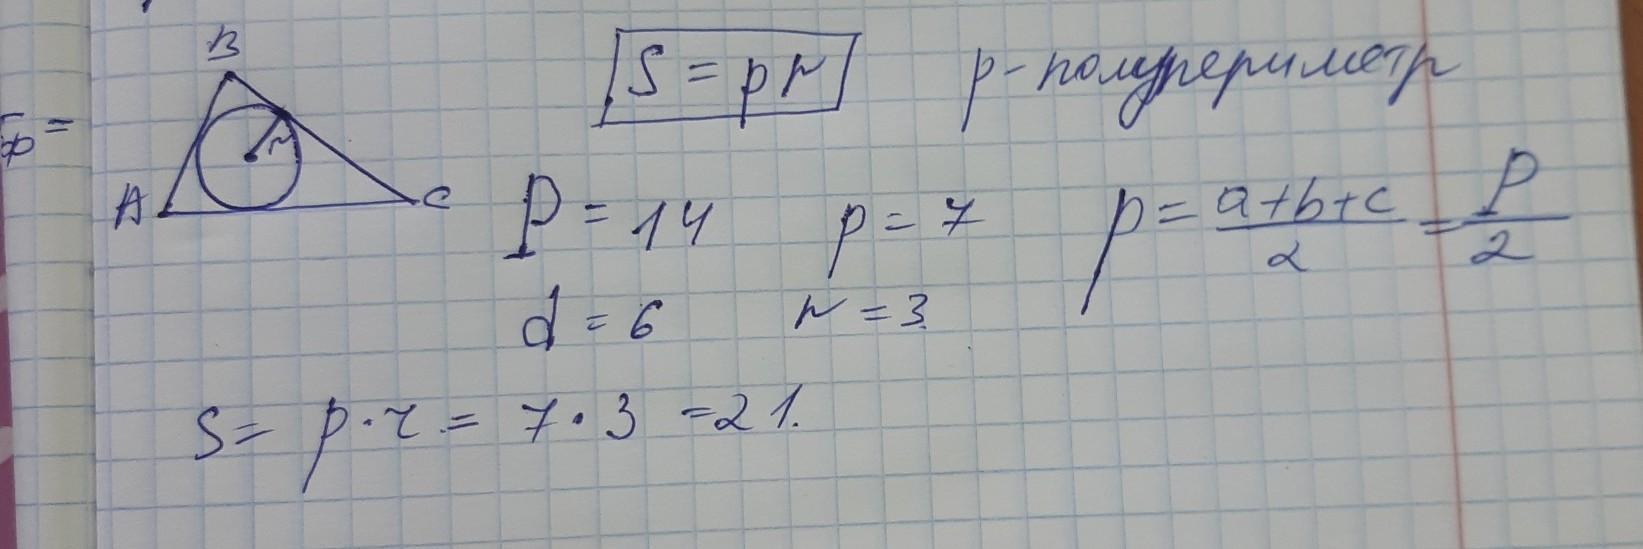 B
S = pr p - полупериметр
A C r
P = 14 p = 7 p = \frac{a+b+c}{2} = \frac{P}{2}
d = 6 r = 3
S = p · r = 7 · 3 = 21.